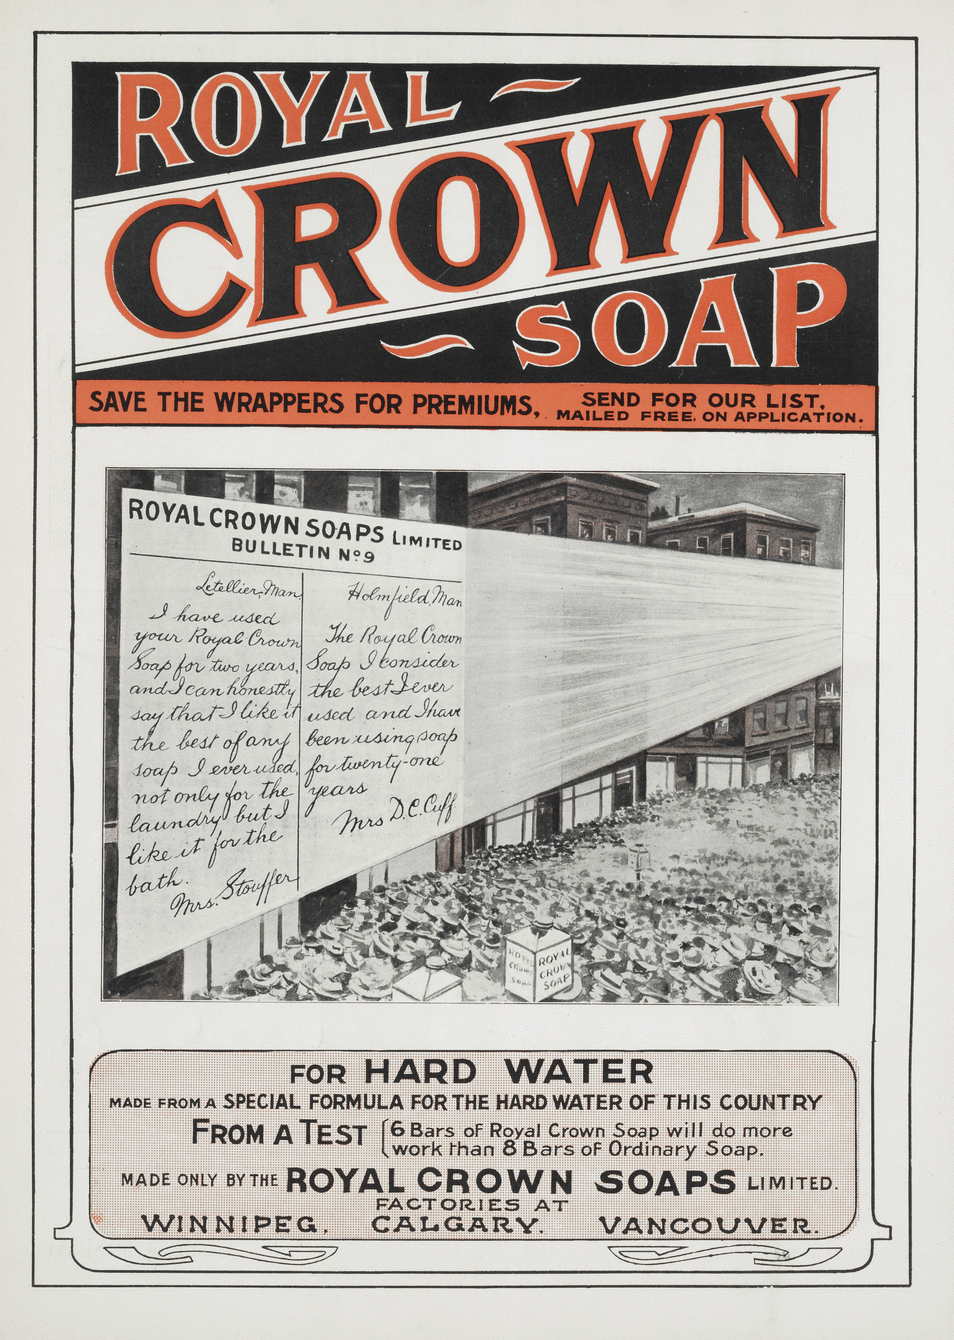 ROYAL
CROWN
SOAP
SAVE THE WRAPPERS FOR PREMIUMS,
SEND FOR OUR LIST,
MAILED FREE. ON APPLICATION.
ROYAL CROWN SOAPS LIMITED
BULLETIN No. 9
Letellier, Man
I have used
your Royal Crown
Soap for two years,
and I can honestly
say that I like it
the best of any
soap I ever used,
not only for the
laundry but I
like it for the
bath.
Mrs. Stouffer
Holmfield, Man
The Royal Crown
Soap I consider
the best I ever
used and I have
been using soap
for twenty-one
years
Mrs D.C. Cuff
ROYAL
CROWN
SOAP
ROYAL
CROWN
SOAP
FOR HARD WATER
MADE FROM A SPECIAL FORMULA FOR THE HARD WATER OF THIS COUNTRY
FROM A TEST
6 Bars of Royal Crown Soap will do more
work than 8 Bars of Ordinary Soap.
MADE ONLY BY THE ROYAL CROWN SOAPS LIMITED.
FACTORIES AT
WINNIPEG, CALGARY, VANCOUVER.